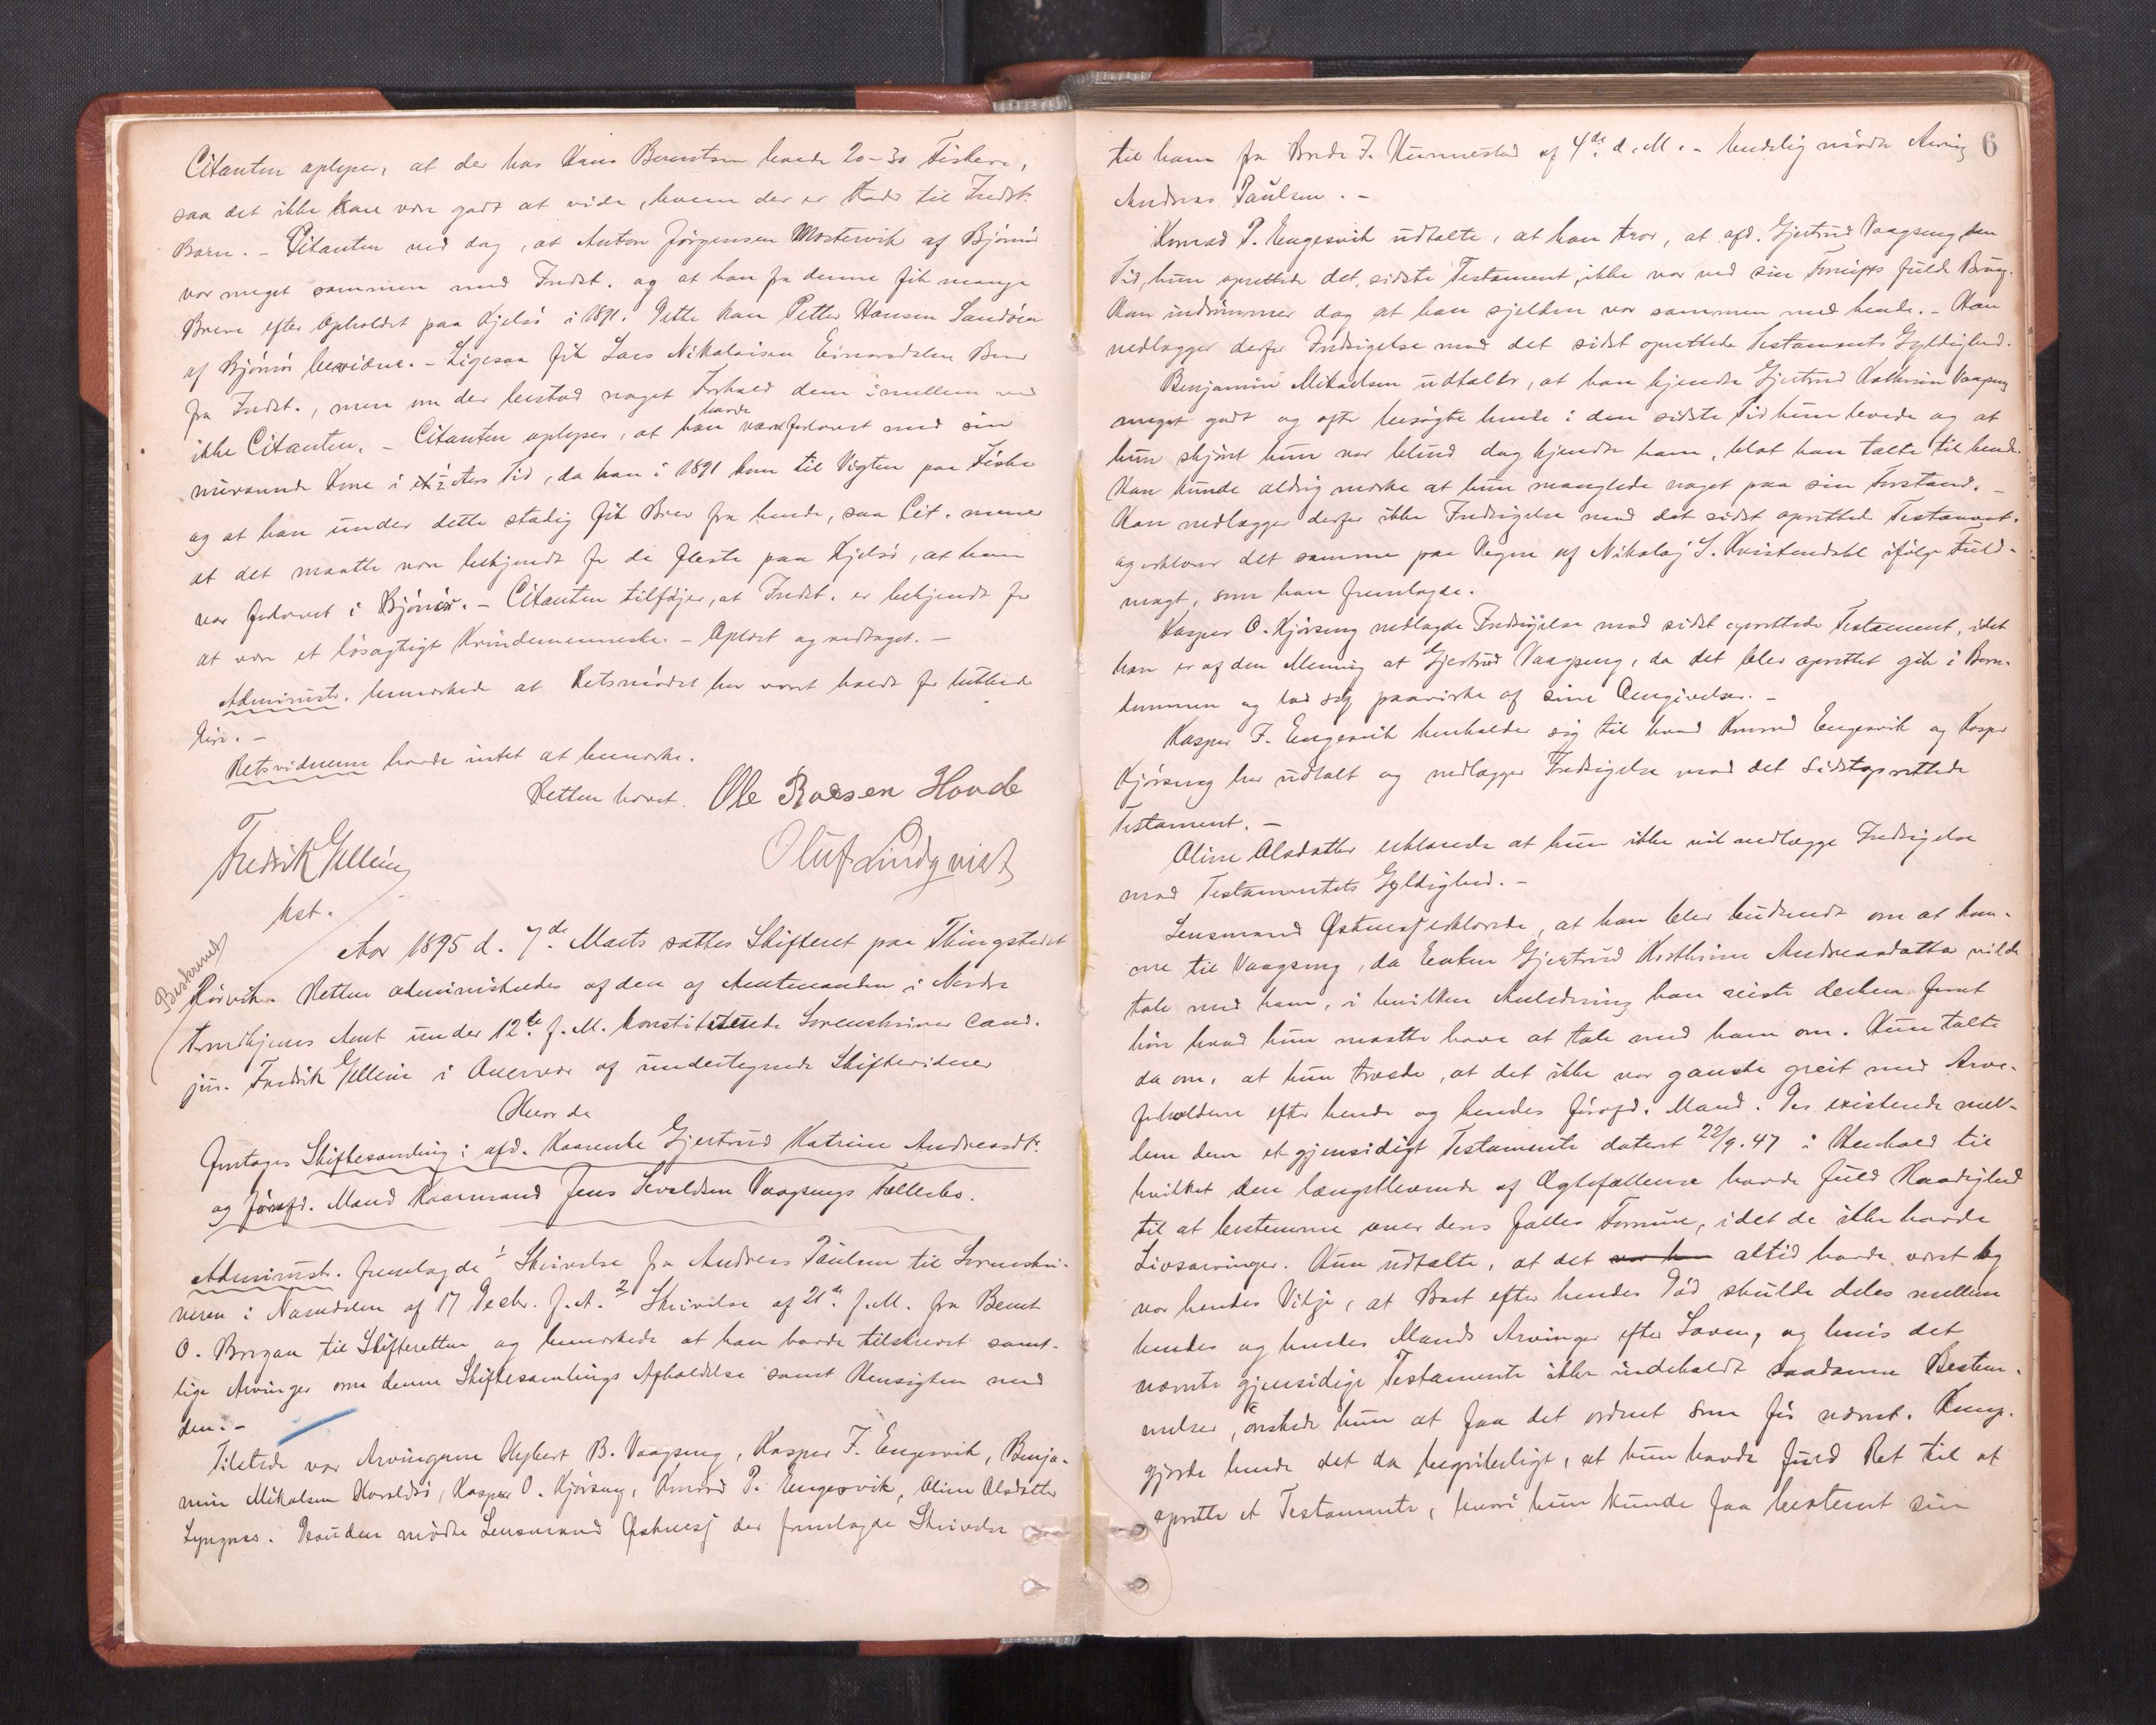 Citanten oplyser, at der hos Hans Berntsen havde 20-30 Fiskere,
saa det ikke kan være godt at vide, hvem der er Fader til Indst.
Barn. - Citanten ved dog, at Anton Jørgensen Mostervik af Bjönör
var meget sammen med Indst. og at han fra denne fik mange
Breve efter Opholdet paa Kjelsö i 1891. Dette kan Petter Hansen Sandöen
af Bjönör bevidne. - Ligesaa fik Lars Nikolaisen Einarsdalen Brev
fra Indst., men om der bestod noget Forhold dem imellem ved
ikke Citanten. - Citanten oplyser, at han havde været forlovet med sin
nuværende Kone i ½ Aars Tid, da han i 1891 kom til Vigten paa Fiske
og at han under dette stadig fik Brev fra hende, saa Cit. mener
at det maatte være bekjendt for de fleste paa Kjelsö, at han
var forlovet i Bjönör. - Citanten tilföjer, at Indst. er bekjendt for
at være et lösagtigt Kvindemenneske. - Oplæst og vedtaget. -
Administr. bemærkede at Retsmödet har været holdt for lukkede
Döre. -
Retsvidnerne havde intet at bemærke.
Retten hævet. Ole Roesen Hovde
Fredrik Gllein Oluf Lindqvist
kst.
Beskrevet
Aar 1895 d. 7de Marts sattes Skifteret paa Thingstedet
Rörvik. Retten administredes af den af Amtmanden i Nordre
Trondhjems Amt under 12te f. M. konstituerede Sorenskriver cand.
jur. Fredrik Gllein i Overvær af undertegnede Skiftevidner
Hvorda
foretoges Skiftesamling i afd. Kaarenke Gjertrud Katrine Andreasdtr.
og föravd. Mand Kaarmand Jens Sevaldsen Vaagsengs Fællesbo.
Administr. fremlagde 1 Skrivelse fra Andreas Paulsen til Sorenskri-
veren i Namdalen af 17 Decbr. f. A. 2 Skrivelse af 21de f. M. fra Bernt
O. Borgan til Skifteretten og bemærkede at han havde tilskrevet samt-
lige Arvinger om denne Skiftesamlings Afholdelse samt Hensigten med
den. -
Tilstede var Arvingerne Hybert B. Vaagseng, Kasper F. Engesvik, Benja-
min Mikalsen Horseldö, Kasper O. Kjörseng, Konrad P. Engesvik, Oline Olsdatter
Lyngsnes. Desuden mödte Lensmand Östnesj der fremlagde Skrivelse
6
til ham fra Brede F. Hunnestad af 4de d. M. - Endelig mödte Arving
Andreas Paulsen. -
Konrad P. Engesvik udtalte, at han tror, at afd. Gjertrud Vaagseng den
Tid, hun oprettede det sidste Testament, ikke var ved sin Fornufts fulde Brug.
Han indrömmer dog at han sjelden var sammen med hende. - Han
nedlægger derfor Indsigelse mod det sidst oprettede Testaments Gyldighed.
Benjamin Mikaelsen udtalte, at han kjendte Gjertrud Kathrine Vaagseng
meget godt og ofte besögte hende i den sidste Tid hun levede og at
hun skjönt hun var blind dog kjendte ham, blot han talte til hende.
Han kunde aldrig mærke at hun manglede noget paa sin Forstand. -
Han nedlægger derfor ikke Indsigelse mod det sidst oprettede Testament.
og erklærer det samme paa Vegne af Nikolaj S. Kvistendahl ifölge Fuld-
magt, som han fremlagde.
Kasper O. Kjörseng nedlagde Indsigelse mod sidst oprettede Testament, idet
han er af den Mening at Gjertrud Vaagseng, da det blev oprettet gik i Barn-
dommen og lod sig paavirke af sine Omgivelser. -
Kasper F. Engesvik henholder sig til hvad Konrad Engesvik og Kasper
Kjörseng har udtalt og nedlægger Indsigelse mod det sidstoprettede
Testament. -
Oline Olsdatter erklærede at hun ikke vil nedlægge Indsigelse
mod Testamentets Gyldighed. -
Lensmand Østnesj erklærede, at han blev budsendt om at kom-
me til Vaagseng, da Enken Gjertrud Kathrine Andreasdatter vilde
tale med ham, i hvilken Anledning han reiste derhen for at
höre hvad hun maatte have at tale med ham om. Hun talte
da om, at hun troede, at det ikke var ganske greit med Arve-
forholdene efter hende og hendes föravd. Mand. Der existerede mel-
lem dem et gjensidigt Testamente dateret 22/9.47 i Henhold til
hvilket den længstlevende af Ægtefællerne havde fuld Raadighed
til at bestemme over deres fælles Formue, idet de ikke havde
Livsarvinger. Hun udtalte, at det altid havde været og
var hendes Vilje, at Boet efter hendes Död skulde deles mellem
hendes og hendes Mands Arvinger efter Loven, og hvis det
nævnte gjensidige Testamente ikke indeholdt saadanne Bestem-
melser, önskede hun at faa det ordnet som för nævnt. Komp.
gjorde hende det da begribeligt, at hun havde fuld Ret til at
oprette et Testamente, hvori hun kunde faa bestemt sin